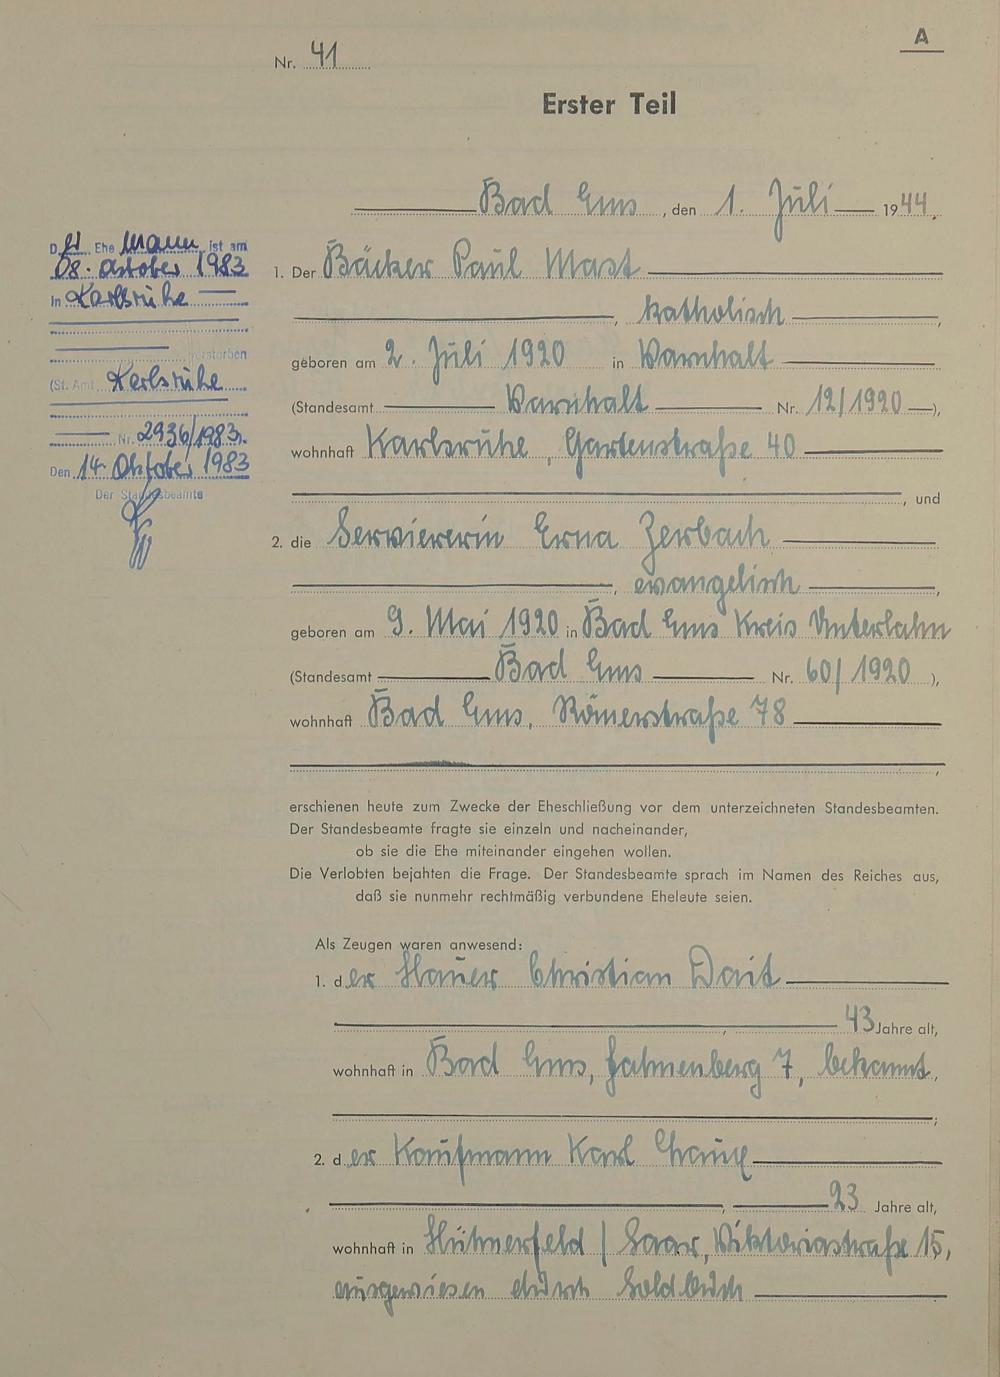 A
Nr. 41
Erster Teil
Bad Ems, den 1. Juli 1944.
D er Ehe Mann ist am
08. Oktober 1983
in Karlsruhe
verstorben
(St. Amt Karlsruhe
Nr. 2936/1983).
Den 14. Oktober 1983
Der Standesbeamte
1. Der Bäcker Paul Mast
, katholisch ,
geboren am 2. Juli 1920 in Varnhalt
(Standesamt Varnhalt Nr. 12/1920 ),
wohnhaft Karlsruhe, Gartenstraße 40
, und
2. die Serviererin Erna Zerbach
, evangelisch ,
geboren am 9. Mai 1920 in Bad Ems Kreis Unterlahn
(Standesamt Bad Ems Nr. 60/1920 ),
wohnhaft Bad Ems, Römerstraße 78
,
erschienen heute zum Zwecke der Eheschließung vor dem unterzeichneten Standesbeamten.
Der Standesbeamte fragte sie einzeln und nacheinander,
ob sie die Ehe miteinander eingehen wollen.
Die Verlobten bejahten die Frage. Der Standesbeamte sprach im Namen des Reiches aus,
daß sie nunmehr rechtmäßig verbundene Eheleute seien.
Als Zeugen waren anwesend:
1. d er Hauer Christian Dait
, 43 Jahre alt,
wohnhaft in Bad Ems, Fahnenberg 7, bekannt,
;
2. d er Kaufmann Karl
, 23 Jahre alt,
wohnhaft in Hühnerfeld / Saar, Viktoriastraße 15,
ausgewiesen durch Soldbuch